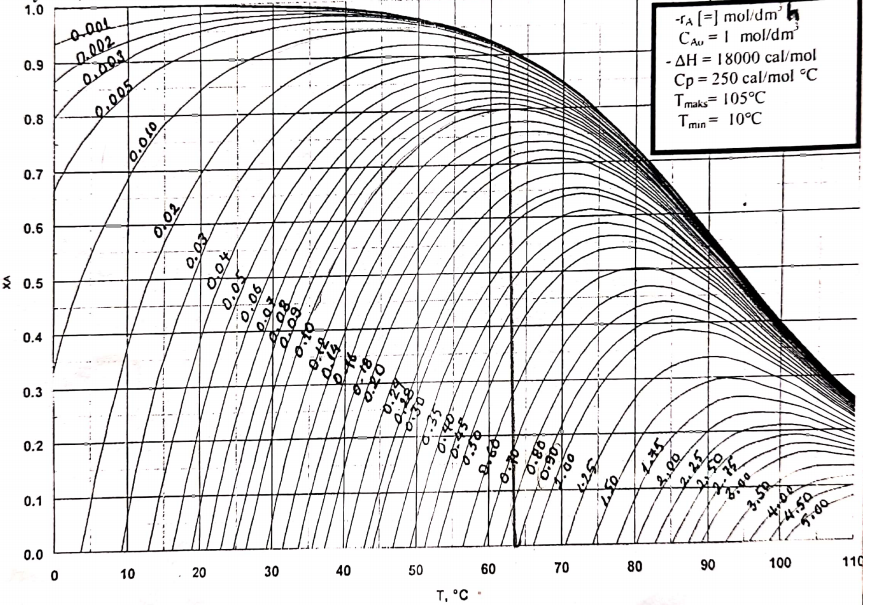 -rA [=] mol/dm³ h
CAo = 1 mol/dm³
- ΔH = 18000 cal/mol
Cp = 250 cal/mol °C
Tmaks= 105°C
Tmin = 10°C
1.0
0.9
0.8
0.7
0.6
0.5
0.4
0.3
0.2
0.1
0.0
XA
0.001
0.002
0.003
0.005
0.010
0.02
0.03
0.04
0.05
0.06
0.07
0.08
0.09
0.10
0.12
0.14
0.16
0.18
0.20
0.30
0.35
0.40
0.45
0.50
0.60
0.70
0.80
0.90
1.00
1.25
1.50
1.75
2.00
2.25
2.50
2.75
3.00
3.50
4.00
4.50
5.00
0 10 20 30 40 50 60 70 80 90 100 110
T, °C